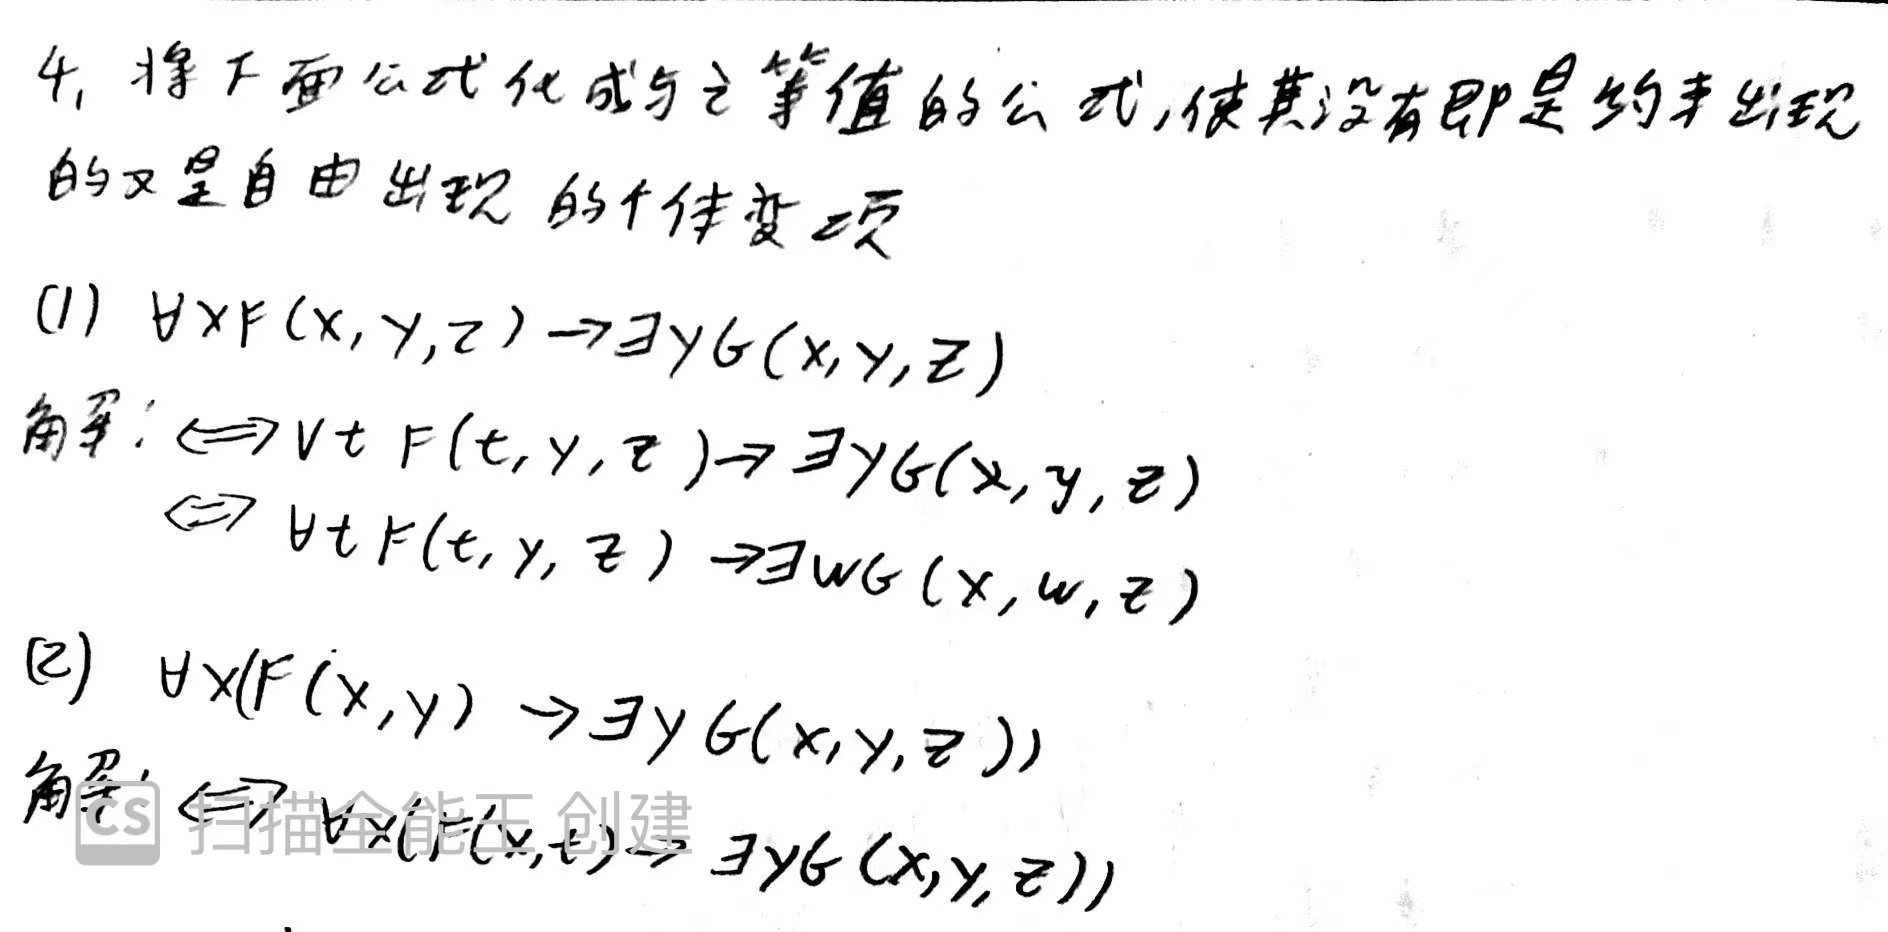 4, 将下面公式化成与之等值的公式,使其没有即是约束出现
的又是自由出现的个体变项
(1) ∀xF(x,y,z)→∃yG(x,y,z)
解: ⇔∀t F(t,y,z)→∃yG(x,y,z)
⇔ ∀tF(t,y,z)→∃wG(x,w,z)
(2) ∀x(F(x,y)→∃yG(x,y,z))
解: ⇔ ∀x(F(x,t)→∃yG(x,y,z))
CS 扫描全能王 创建